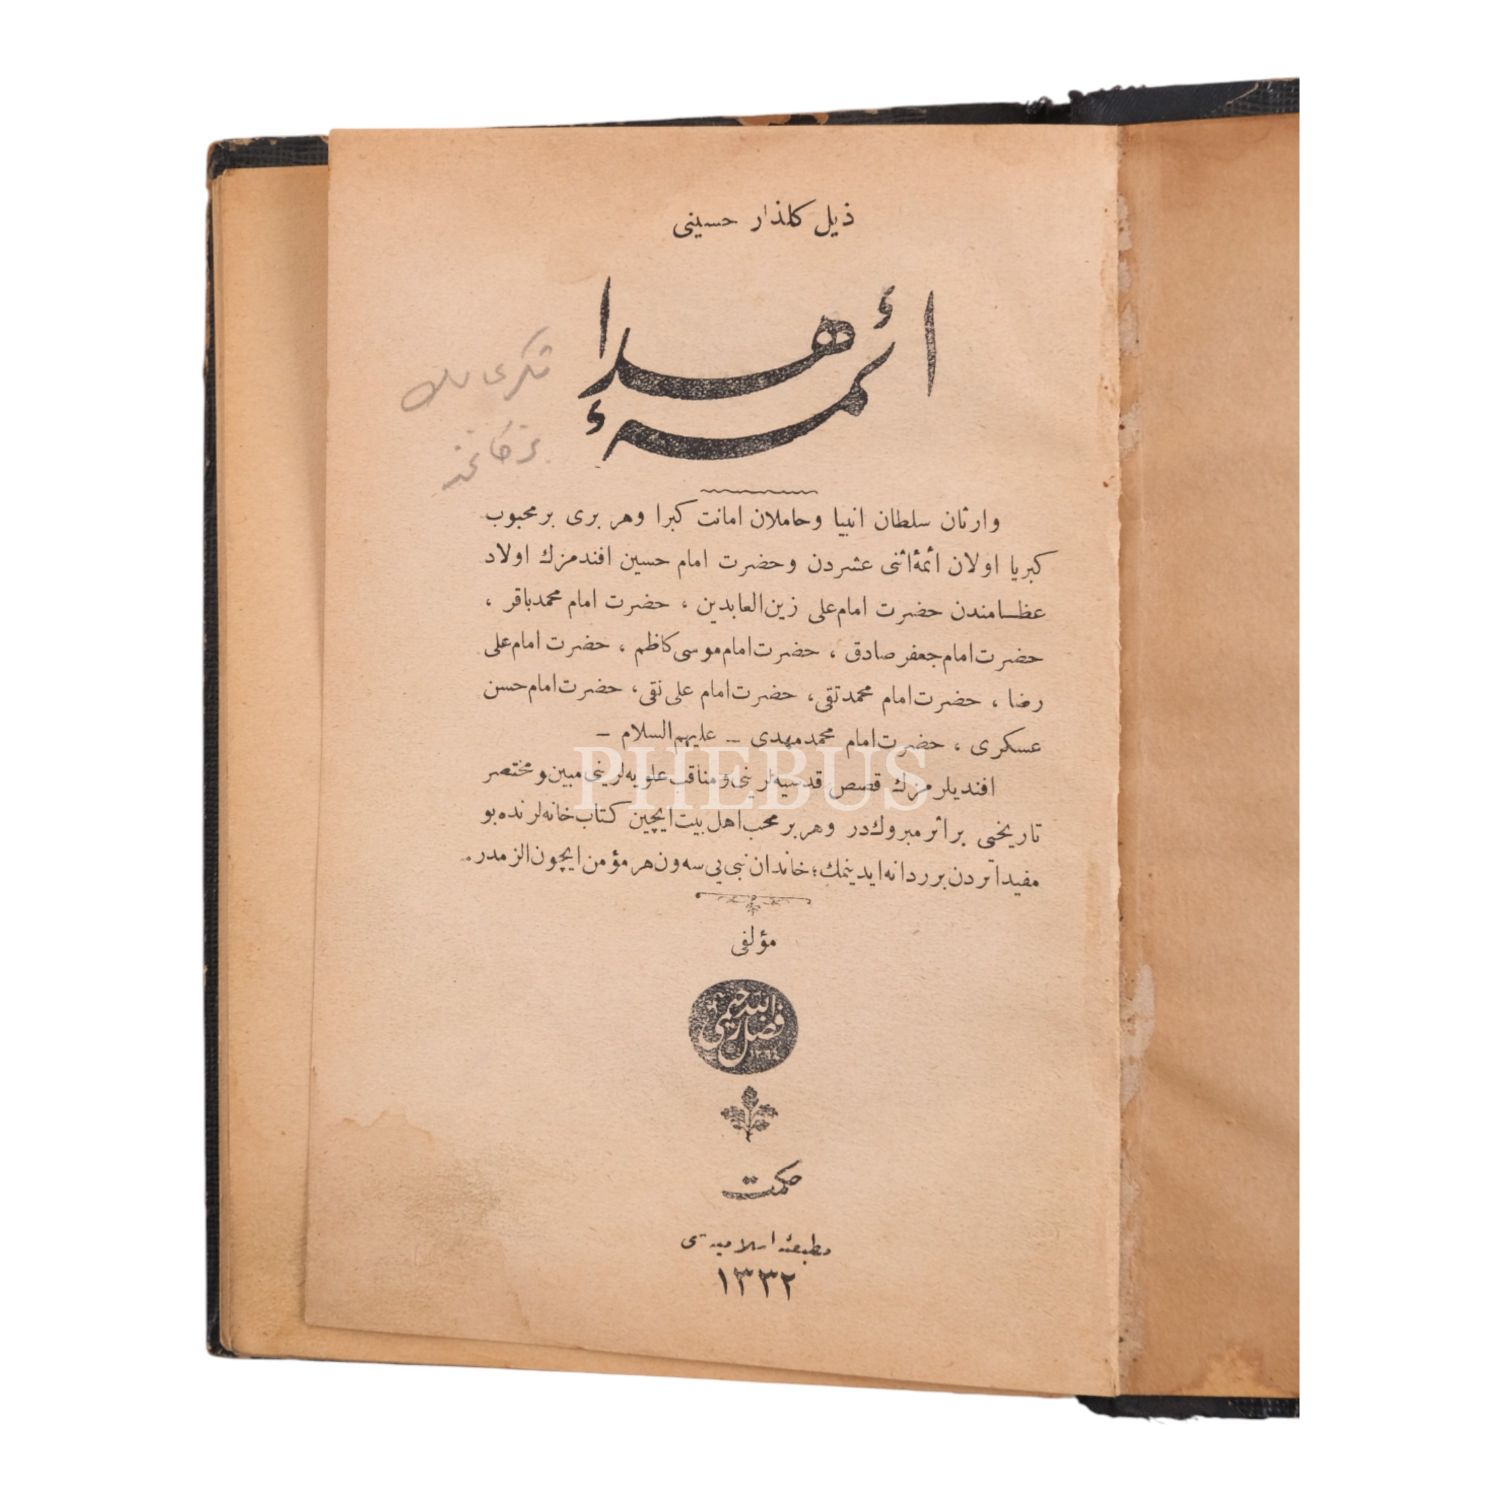 ذيل كلذار حسينى
ائمهٔ هدا
وارثان سلطان انبيا وحاملان امانت كبرا وهر برى بر محبوب
كبريا اولان ائمهٔ اثنى عشردن وحضرت امام حسين افندمزك اولاد
عظامندن حضرت امام على زين العابدين ، حضرت امام محمد باقر ،
حضرت امام جعفر صادق ، حضرت امام موسى كاظم ، حضرت امام على
رضا ، حضرت امام محمد تقى، حضرت امام على نقى، حضرت امام حسن
عسكرى ، حضرت امام محمد مهدى – عليهم السلام –
افنديلرمزك قصص قدسيه لرينى ومناقب علويه لرينى مبين ومختصر
تاريخى بر اثر مبروكدر وهر بر محب اهل بيت ايچين كتابخانه لرنده بو
مفيد اثردن بر ردانه ايدينمك؛ خاندان نبى يى سه ون هر مؤمن ايچون الزمدر.
مؤلفى
فضل الله رحيمى
حكمت
مطبعهٔ اسلاميه سى
١٣٣٢
PHEBUS